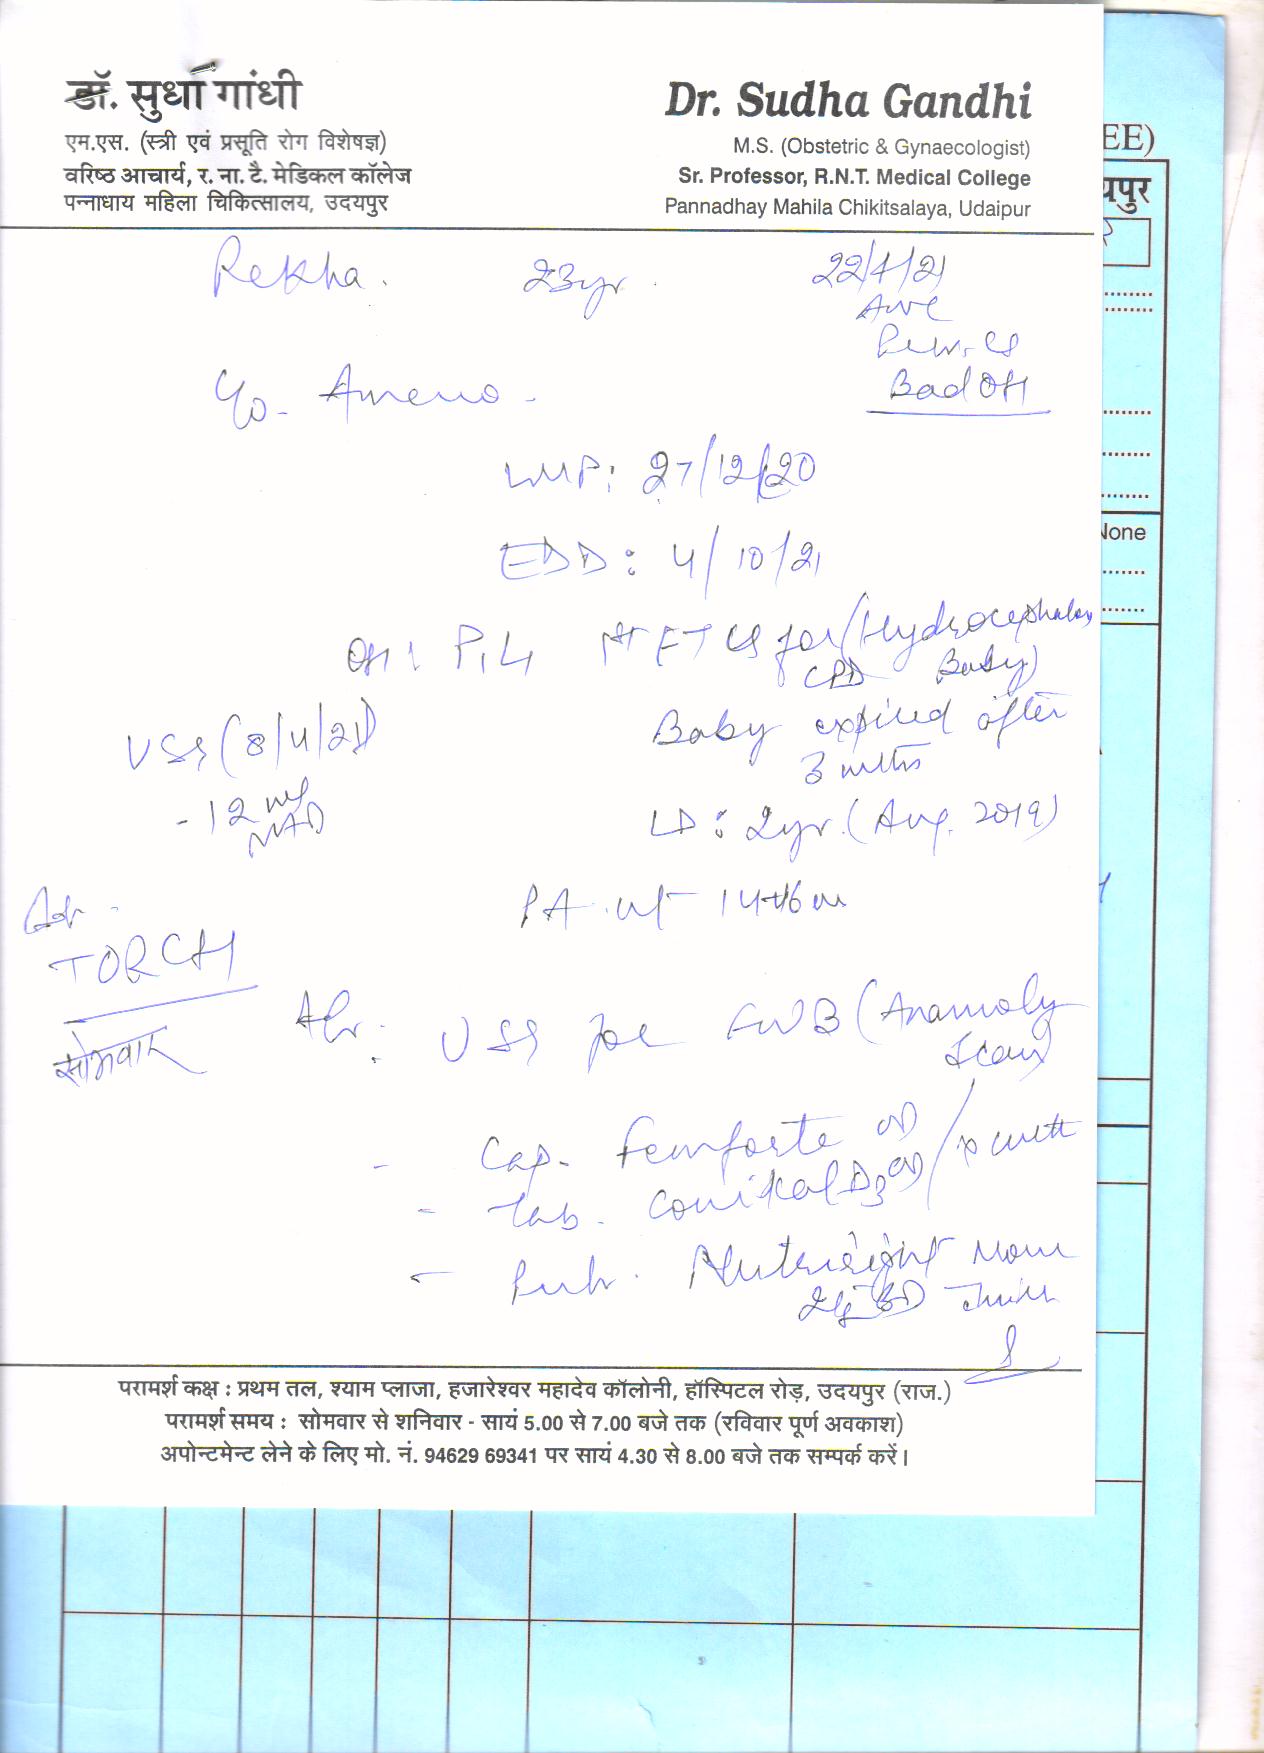 डॉ. सुधा गांधी
एम.एस. (स्त्री एवं प्रसूति रोग विशेषज्ञ)
वरिष्ठ आचार्य, र. ना. टै. मेडिकल कॉलेज
पन्नाधाय महिला चिकित्सालय, उदयपुर
Dr. Sudha Gandhi
M.S. (Obstetric & Gynaecologist)
Sr. Professor, R.N.T. Medical College
Pannadhay Mahila Chikitsalaya, Udaipur
EE)
यपुर
None
Rekha. 23yr. 22/4/21
ANC
Prev. CS
Bad OH
Ameno -
LMP: 27/12/20
EDD: 4/10/21
OH: FTCS for (Hydrocephalus
CPD Baby)
Baby expired after
3 mths
USG (8/4/21)
- 12
NAD
LD: 2yr. (Aug. 2019)
PA. ut 14-16
Adv -
TORCH
सोमवार
Adv: USG for FWB (Anamoly
Scan)
- Cap. Femforte OD
- Tab. D3 OD
- Nutright Mom
BD
परामर्श कक्ष : प्रथम तल, श्याम प्लाजा, हजारेश्वर महादेव कॉलोनी, हॉस्पिटल रोड़, उदयपुर (राज.)
परामर्श समय : सोमवार से शनिवार - सायं 5.00 से 7.00 बजे तक (रविवार पूर्ण अवकाश)
अपोन्टमेन्ट लेने के लिए मो. नं. 94629 69341 पर सायं 4.30 से 8.00 बजे तक सम्पर्क करें।